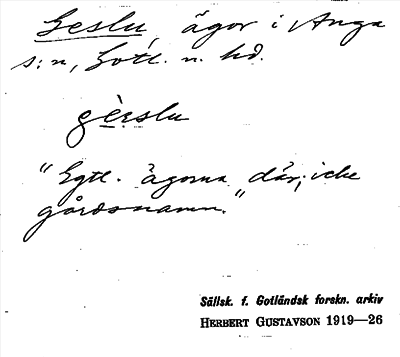 Geslu, ägor i Anga
s:n, Gotl. n. hd.
gèrslu
"Egtl. ägorna där, icke
gårdsnamn."
Sällsk. f. Gotländsk forskn. arkiv
HERBERT GUSTAVSON 1919—26